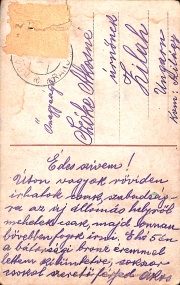 Őnagysága
Csőke Ákosné
úrnőnek
Zilah
Ungarn
Kom: Szilágy
Édes szivem!
Uton vagyok röviden
írhatok csak szabadság-
ra az uj állomás helyről
mehetek csak, majd onnan
bővebben fogok írni. Elsőén
a bátorsági bronz éremmel
lettem kitüntetve, sokszor
csókol szerető férjed Ákos